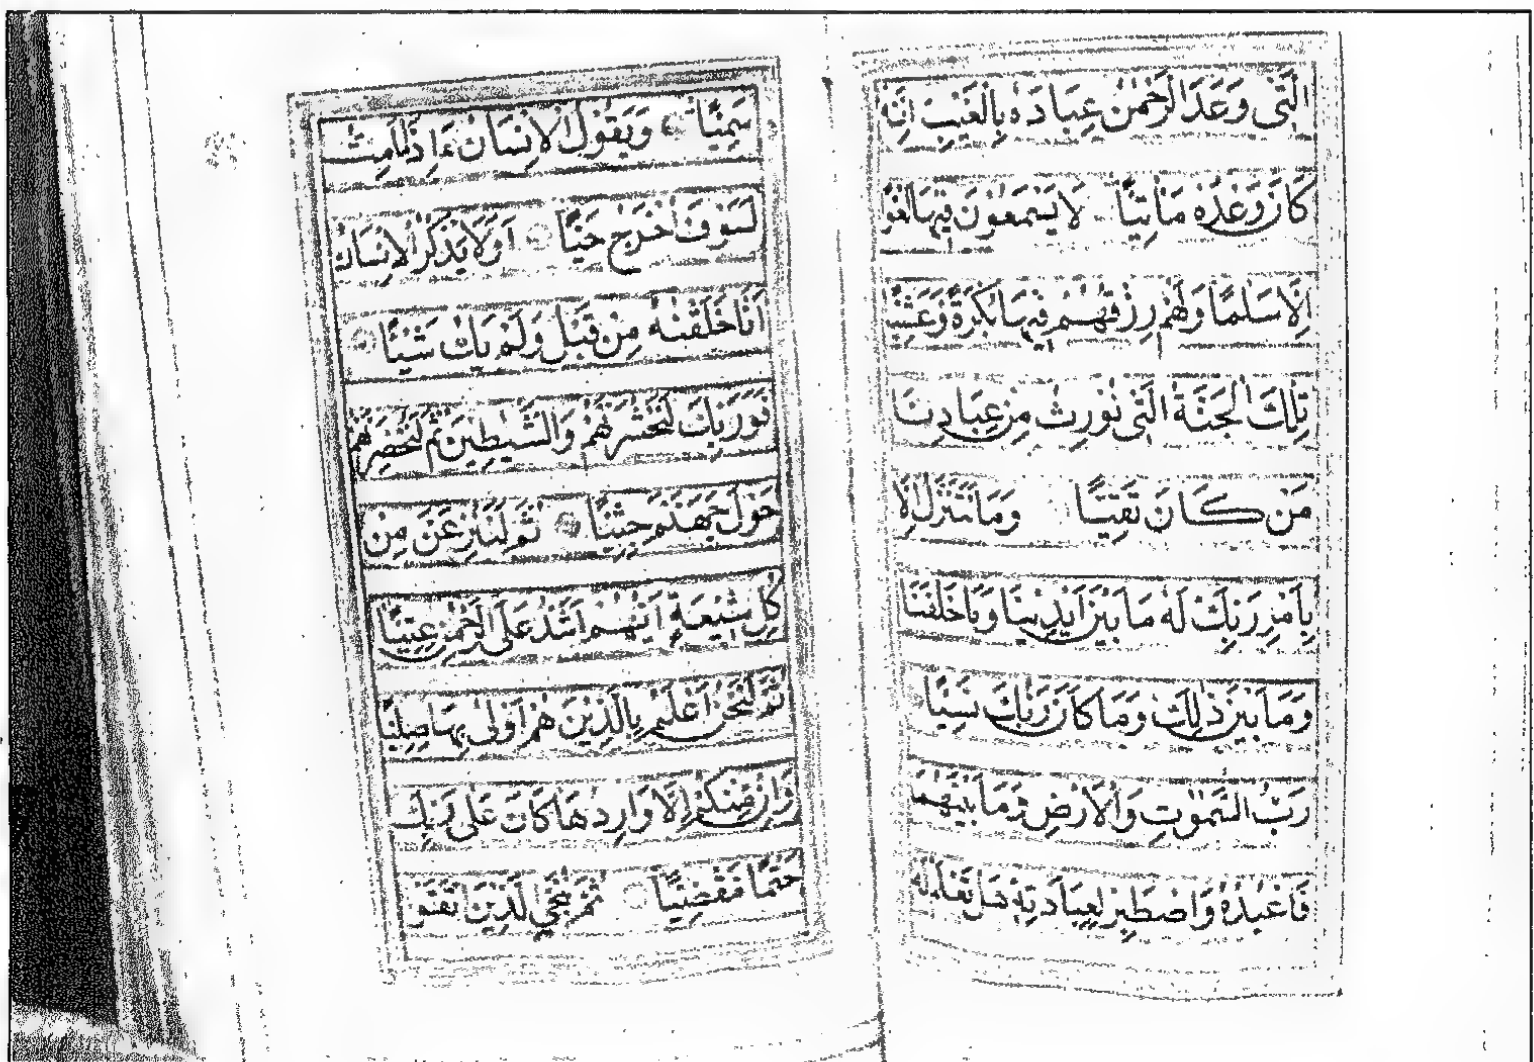 الَّتِى وَعَدَ الرَّحْمٰنُ عِبَادَهٗ بِالْغَيْبِ اِنَّهٗ
كَانَ وَعْدُهٗ مَاْتِيًّا لَا يَسْمَعُوْنَ فِيْهَا لَغْوًا
اِلَّا سَلٰمًا وَلَهُمْ رِزْقُهُمْ فِيْهَا بُكْرَةً وَّعَشِيًّا
تِلْكَ الْجَنَّةُ الَّتِى نُوْرِثُ مِنْ عِبَادِنَا
مَنْ كَانَ تَقِيًّا وَمَا نَتَنَزَّلُ اِلَّا
بِاَمْرِ رَبِّكَ لَهٗ مَا بَيْنَ اَيْدِيْنَا وَمَا خَلْفَنَا
وَمَا بَيْنَ ذٰلِكَ وَمَا كَانَ رَبُّكَ نَسِيًّا
رَبُّ السَّمٰوٰتِ وَالْاَرْضِ وَمَا بَيْنَهُمَا
فَاعْبُدْهُ وَاصْطَبِرْ لِعِبَادَتِهٖ هَلْ تَعْلَمُ لَهٗ
سَمِيًّا وَيَقُوْلُ الْاِنْسَانُ ءَاِذَا مَامِتُّ
لَسَوْفَ اُخْرَجُ حَيًّا اَوَلَا يَذْكُرُ الْاِنْسَانُ
اَنَّا خَلَقْنٰهُ مِنْ قَبْلُ وَلَمْ يَكُ شَيْئًا
فَوَرَبِّكَ لَنَحْشُرَنَّهُمْ وَالشَّيٰطِيْنَ ثُمَّ لَنُحْضِرَنَّهُمْ
حَوْلَ جَهَنَّمَ جِثِيًّا ثُمَّ لَنَنْزِعَنَّ مِنْ
كُلِّ شِيْعَةٍ اَيُّهُمْ اَشَدُّ عَلَى الرَّحْمٰنِ عِتِيًّا
ثُمَّ لَنَحْنُ اَعْلَمُ بِالَّذِيْنَ هُمْ اَوْلٰى بِهَا صِلِيًّا
وَاِنْ مِّنْكُمْ اِلَّا وَارِدُهَا كَانَ عَلٰى رَبِّكَ
حَتْمًا مَّقْضِيًّا ثُمَّ نُنَجِّى الَّذِيْنَ اتَّقَوْا